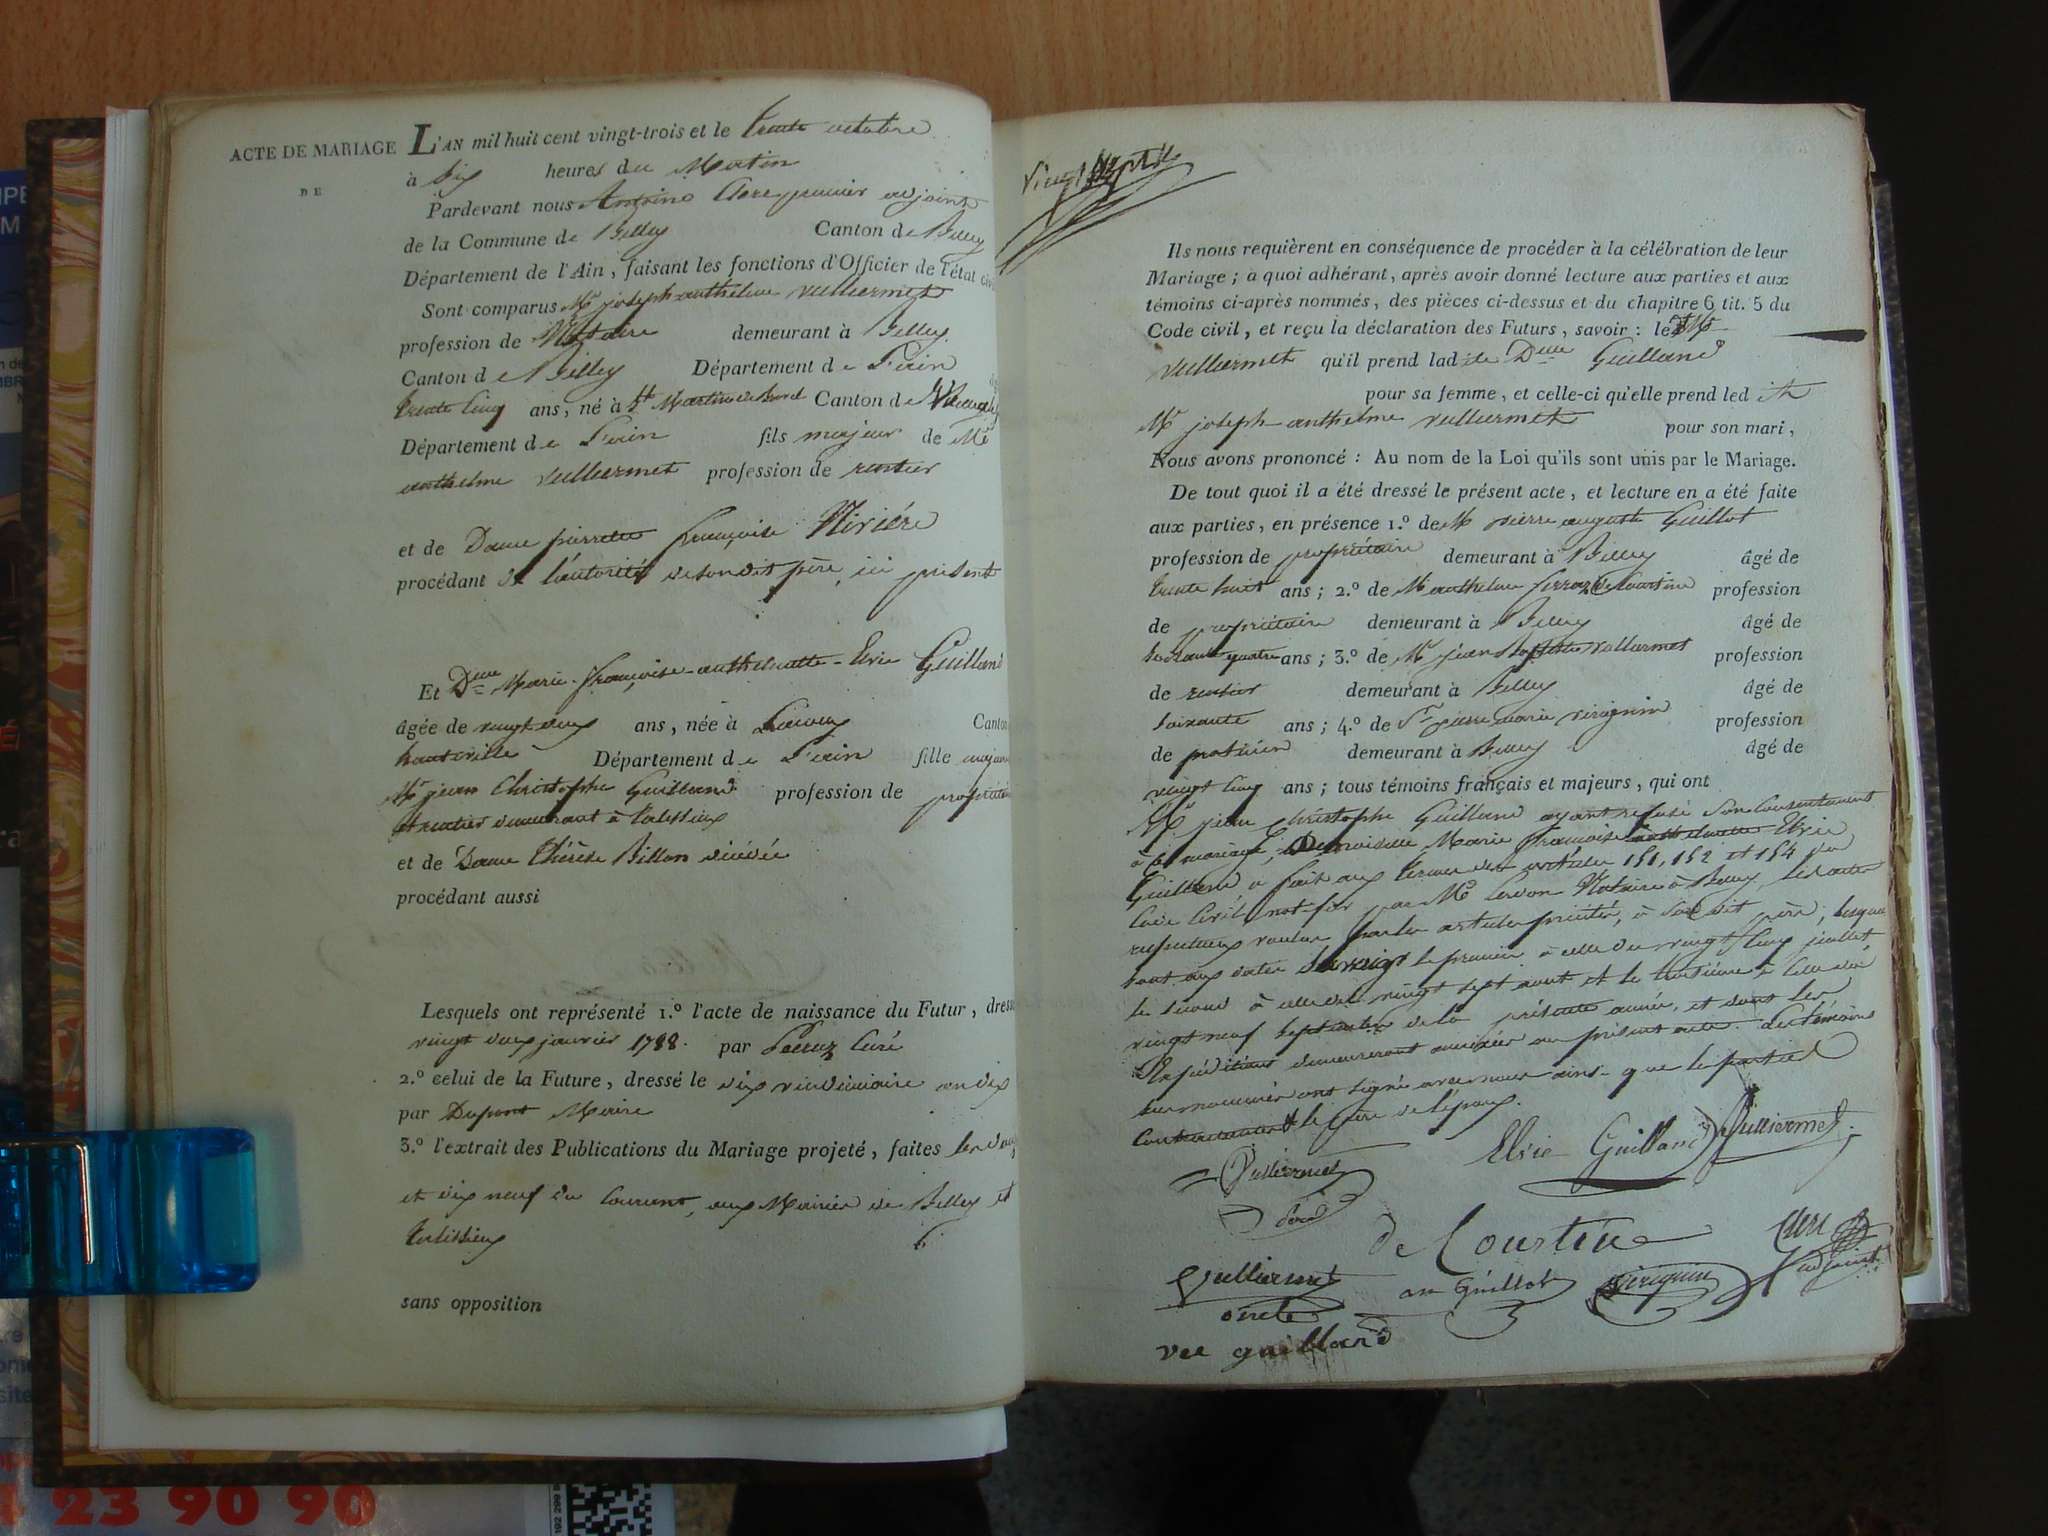 ACTE DE MARIAGE
DE
L'AN mil huit cent vingt-trois et le trente octobre
à six heures du Matin
Pardevant nous Antoine Clerc premier adjoint
de la Commune de Belley Canton de Belley
Département de l'Ain, faisant les fonctions d'Officier de l'état civ
Sont comparus Mr joseph anthelme vulliermet
profession de Notaire demeurant à Belley
Canton de Belley Département de L'ain
trente cinq ans, né à St Martin de Bavel Canton de
Département de L'ain fils majeur de Mr
anthelme vulliermet profession de rentier
et de Dame pierrette françoise Nivière
procédant de l'autorité de son dit père, ici présent
Et Dlle Marie-françoise-anthelmette-Elvie Guilland
âgée de vingt deux ans, née à Lacoux Canton
hauteville Département de L'ain fille majeure
Mr jean Christophe Guilland profession de propriétaire
et rentier demeurant à talissieu
et de Dame Thérèse Billon décédée
procédant aussi
Lesquels ont représenté 1.º l'acte de naissance du Futur, dress
vingt deux janvier 1788. par curé
2.º celui de la Future, dressé le dix vendémiaire an dix
par Dupont Maire
3.º l'extrait des Publications du Mariage projeté, faites les douze
et dix neuf du courant, aux Mairies de Belley et
talissieu
sans opposition
vingt sept
Ils nous requièrent en conséquence de procéder à la célébration de leur
Mariage; à quoi adhérant, après avoir donné lecture aux parties et aux
témoins ci-après nommés, des pièces ci-dessus et du chapitre 6 tit. 5 du
Code civil, et reçu la déclaration des Futurs, savoir: led Mr
vulliermet qu'il prend lad ite Dlle Guilland
pour sa femme, et celle-ci qu'elle prend led it
Mr joseph anthelme vulliermet pour son mari,
Nous avons prononcé: Au nom de la Loi qu'ils sont unis par le Mariage.
De tout quoi il a été dressé le présent acte, et lecture en a été faite
aux parties, en présence 1.º de M pierre auguste Guillot
profession de propriétaire demeurant à Belley âgé de
trente huit ans; 2.º de M anthelme ferroz de Courtine profession
de propriétaire demeurant à Belley âgé de
soixante quatre ans; 3.º de Mr jean Baptiste vulliermet profession
de rentier demeurant à Belley âgé de
soixante ans; 4.º de Sr pierre marie vérignin profession
de praticien demeurant à Belley âgé de
vingt cinq ans; tous témoins français et majeurs, qui ont
Mr jean Christophe Guilland ayant refusé son consentement
à ce mariage, Demoiselle Marie françoise anthelmette Elvie
Guilland a fait aux termes des articles 151, 152 et 154 du
code civil notifier par Me Notaire à Belley, les actes
respectueux voulus par les articles précités, à son dit père, lesquels
sont aux dates savoir le premier à celle du vingt cinq juillet,
le second à celle du vingt sept aout et le troisième à celle du
vingt neuf septembre de la présente année, et dont les
Expéditions demeureront annexées au présent acte. Les témoins
sus nommés ont signé avec nous ainsi que les parties
le père de l'époux.
Elvie Guilland Vulliermet
Vulliermet
père
de Courtine Clerc
adjoint
Vulliermet au Guillot vérignin
oncle
vee guilland
23 90 90